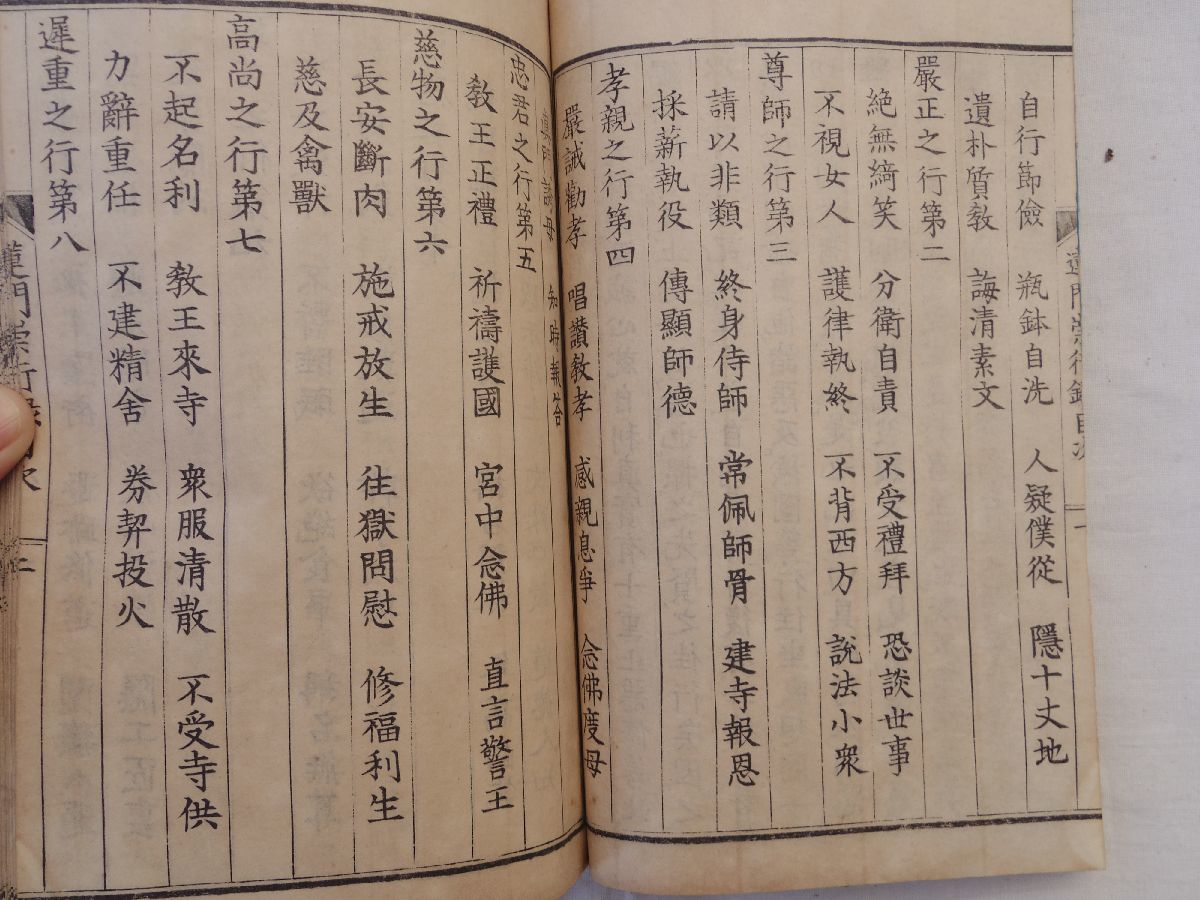 自行節儉　瓶鉢自洗　人疑僕從　隱十丈地
遺朴質教　誨清素文
嚴正之行第二
絶無綺笑　分衛自責　不受禮拜　恐談世事
不視女人　護律執終　不背西方　説法小衆
尊師之行第三
請以非類　終身侍師　常佩師骨　建寺報恩
採薪執役　傳顯師德
孝親之行第四
嚴誡勸孝　唱讃教孝　感親息爭　念佛度母
忠君之行第五
教王正禮　祈禱護國　宮中念佛　直言警王
慈物之行第六
長安斷肉　施戒放生　往獄問慰　修福利生
慈及禽獸
高尚之行第七
不起名利　教王來寺　衆服清散　不受寺供
力辭重任　不建精舍　券契投火
遲重之行第八
蓮門崇行
二